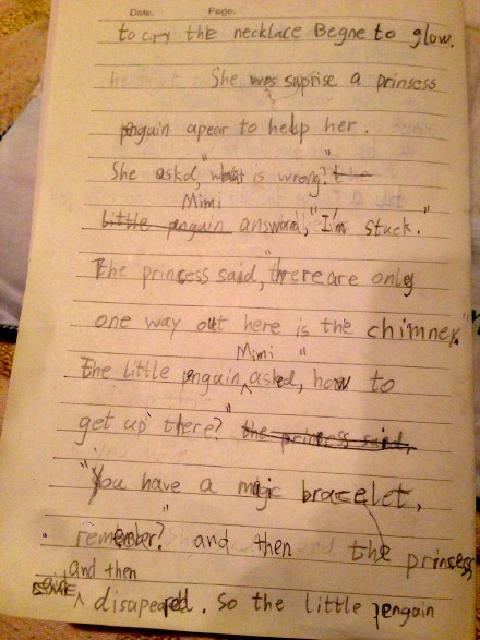 Date. Page.
to cry the necklace Begne to glow.
She was suprise a prinsess
pnguin apear to help her.
She askd, "what is wrong?" the
Mimi
little pnguin answerd, "I'm stuck."
The princess said, "there are only
one way out here is the chimney."
Mimi
The little pnguin ^ asked, "how to
get up there?" the princess said,
"You have a magic bracelet,
remember?" and then the princess
and then
^ disapeared. So the little penguin